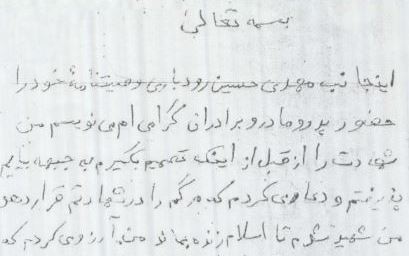 بسمه تعالی
اینجانب مهدی حسین رودباری وصیتنامهٔ خود را
حضور پدر و مادر و برادران گرامی ام می نویسم من
شهادت را از قبل از اینکه تصمیم بگیرم به جبهه بیایم
پذیرفتم و دعا می کردم که مرگم را در شهادتم قرار دهد
من شهید شوم تا اسلام زنده بماند من آرزو می کردم که